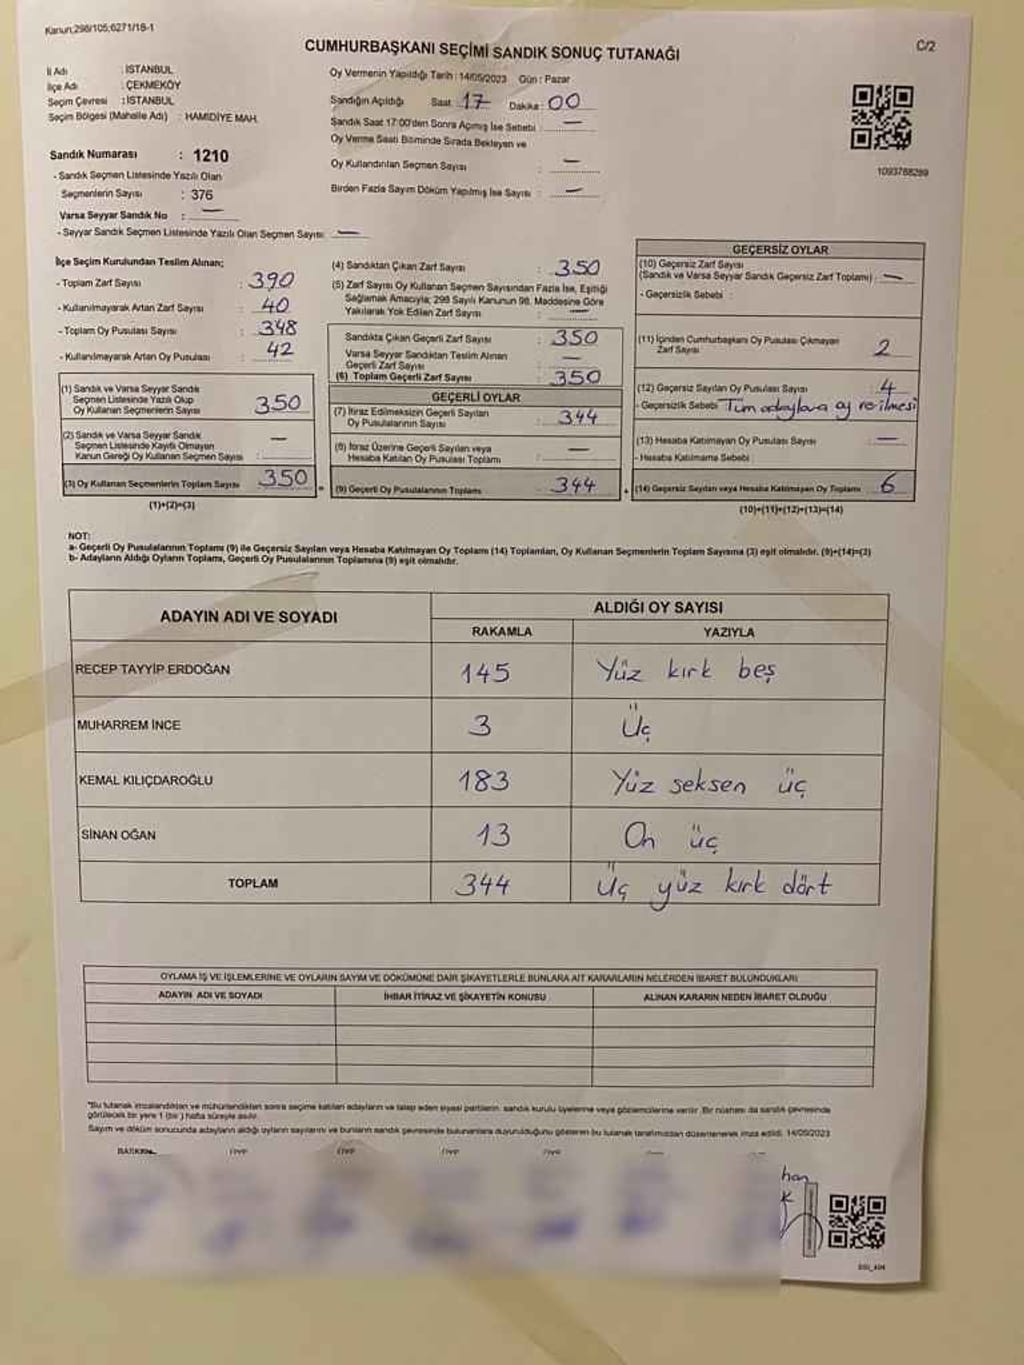 Kanun;298/105;6271/18-1
C/2
CUMHURBAŞKANI SEÇİMİ SANDIK SONUÇ TUTANAĞI
İl Adı : İSTANBUL
İlçe Adı : ÇEKMEKÖY
Seçim Çevresi : İSTANBUL
Seçim Bölgesi (Mahalle Adı) : HAMİDİYE MAH.
Sandık Numarası : 1210
- Sandık Seçmen Listesinde Yazılı Olan
Seçmenlerin Sayısı : 376
Varsa Seyyar Sandık No : —
- Seyyar Sandık Seçmen Listesinde Yazılı Olan Seçmen Sayısı: —
Oy Vermenin Yapıldığı Tarih : 14/05/2023 Gün : Pazar
Sandığın Açıldığı Saat: 17 Dakika: 00
Sandık Saat 17:00'den Sonra Açılmış İse Sebebi : —
Oy Verme Saati Bitiminde Sırada Bekleyen ve
Oy Kullandırılan Seçmen Sayısı : —
Birden Fazla Sayım Döküm Yapılmış İse Sayısı : —
1093788289
İlçe Seçim Kurulundan Teslim Alınan;
- Toplam Zarf Sayısı : 390
- Kullanılmayarak Artan Zarf Sayısı : 40
- Toplam Oy Pusulası Sayısı : 348
- Kullanılmayarak Artan Oy Pusulası : 42
(1) Sandık ve Varsa Seyyar Sandık
Seçmen Listesinde Yazılı Olup
Oy Kullanan Seçmenlerin Sayısı : 350
(2) Sandık ve Varsa Seyyar Sandık
Seçmen Listesinde Kayıtlı Olmayan
Kanun Gereği Oy Kullanan Seçmen Sayısı : —
(3) Oy Kullanan Seçmenlerin Toplam Sayısı : 350
(1)+(2)=(3)
(4) Sandıktan Çıkan Zarf Sayısı : 350
(5) Zarf Sayısı Oy Kullanan Seçmen Sayısından Fazla İse, Eşitliği
Sağlamak Amacıyla; 298 Sayılı Kanunun 98. Maddesine Göre
Yakılarak Yok Edilen Zarf Sayısı : —
Sandıkta Çıkan Geçerli Zarf Sayısı : 350
Varsa Seyyar Sandıktan Teslim Alınan
Geçerli Zarf Sayısı : —
(6) Toplam Geçerli Zarf Sayısı : 350
GEÇERLİ OYLAR
(7) İtiraz Edilmeksizin Geçerli Sayılan
Oy Pusulalarının Sayısı : 344
(8) İtiraz Üzerine Geçerli Sayılan veya
Hesaba Katılan Oy Pusulası Toplamı : —
= (9) Geçerli Oy Pusulalarının Toplamı : 344
GEÇERSİZ OYLAR
(10) Geçersiz Zarf Sayısı
(Sandık ve Varsa Seyyar Sandık Geçersiz Zarf Toplamı) : —
- Geçersizlik Sebebi :
(11) İçinden Cumhurbaşkanı Oy Pusulası Çıkmayan
Zarf Sayısı : 2
(12) Geçersiz Sayılan Oy Pusulası Sayısı : 4
- Geçersizlik Sebebi : Tüm adaylara oy verilmesi
(13) Hesaba Katılmayan Oy Pusulası Sayısı : —
- Hesaba Katılmama Sebebi :
+ (14) Geçersiz Sayılan veya Hesaba Katılmayan Oy Toplamı : 6
(10)+(11)+(12)+(13)=(14)
NOT:
a- Geçerli Oy Pusulalarının Toplamı (9) ile Geçersiz Sayılan veya Hesaba Katılmayan Oy Toplamı (14) Toplamları, Oy Kullanan Seçmenlerin Toplam Sayısına (3) eşit olmalıdır. (9)+(14)=(3)
b- Adayların Aldığı Oyların Toplamı, Geçerli Oy Pusulalarının Toplamına (9) eşit olmalıdır.
ADAYIN ADI VE SOYADI ALDIĞI OY SAYISI
RAKAMLA YAZIYLA
RECEP TAYYİP ERDOĞAN 145 Yüz kırk beş
MUHARREM İNCE 3 Üç
KEMAL KILIÇDAROĞLU 183 Yüz seksen üç
SİNAN OĞAN 13 On üç
TOPLAM 344 Üç yüz kırk dört
OYLAMA İŞ VE İŞLEMLERİNE VE OYLARIN SAYIM VE DÖKÜMÜNE DAİR ŞİKAYETLERLE BUNLARA AİT KARARLARIN NELERDEN İBARET BULUNDUKLARI
ADAYIN ADI VE SOYADI İHBAR İTİRAZ VE ŞİKAYETİN KONUSU ALINAN KARARIN NEDEN İBARET OLDUĞU
"Bu tutanak imzalandıktan ve mühürlendikten sonra seçime katılan adayların ve talep eden siyasi partilerin sandık kurulu üyelerine veya gözlemcilerine verilir. Bir nüshası da sandık çevresinde
görülecek bir yere 1 (bir) hafta süreyle asılır.
Sayım ve döküm sonucunda adayların aldığı oyların sayılarını ve bunların sandık çevresinde bulunanlara duyurulduğunu gösteren bu tutanak tarafımızdan düzenlenerek imza edildi. 14/05/2023